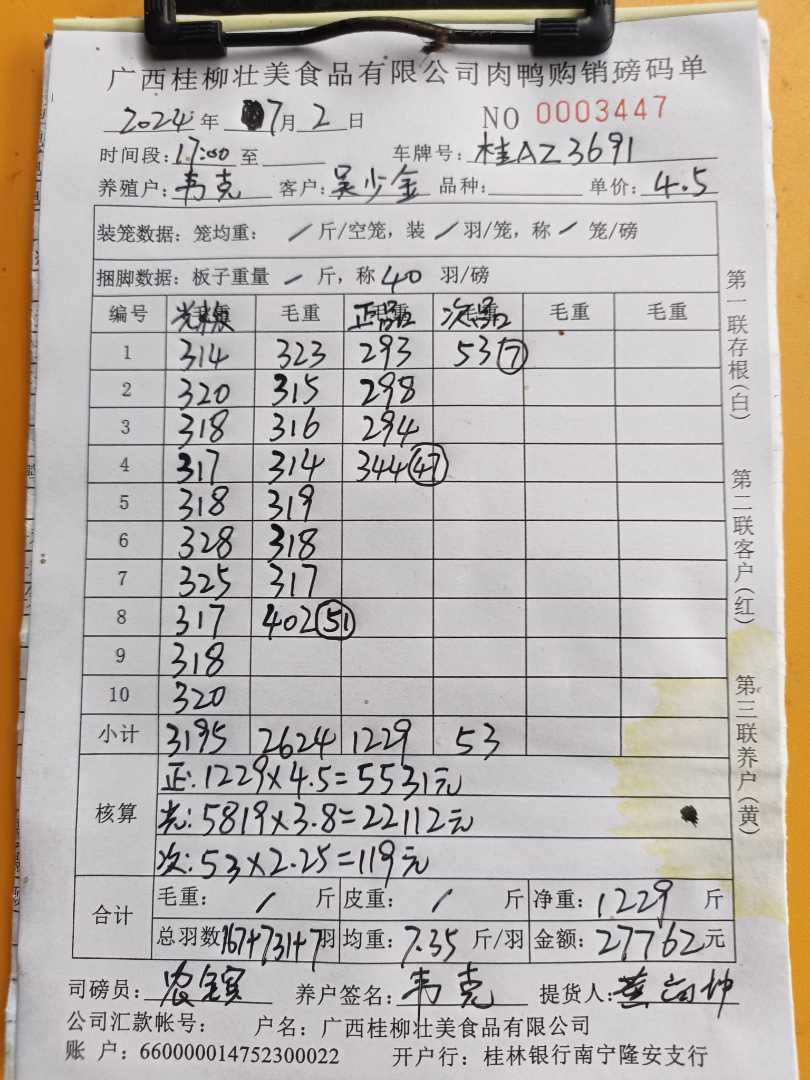 广西桂柳壮美食品有限公司肉鸭购销磅码单
2024年 7月2日 NO 0003447
时间段:17:00至 车牌号:桂AZ3691
养殖户:韦克 客户:吴少金 品种: 单价:4.5
装笼数据:笼均重: / 斤/空笼,装 / 羽/笼,称 / 笼/磅
捆脚数据:板子重量 / 斤,称40 羽/磅
编号 毛重 正品 次品 毛重 毛重
1 314 323 293 53⑦
2 320 315 298
3 318 316 294
4 317 314 344㊼
5 318 319
6 328 318
7 325 317
8 317 402(51)
9 318
10 320
小计 3195 2624 1229 53
核算
正:1229×4.5=5531元
光:5819×3.8=22112元
次:53×2.25=119元
合计
毛重: / 斤 皮重: / 斤 净重:1229 斤
总羽数167+731+7羽 均重:7.35 斤/羽 金额:27762元
司磅员: 养户签名:韦克 提货人:
公司汇款帐号: 户名:广西桂柳壮美食品有限公司
账 户:660000014752300022 开户行:桂林银行南宁隆安支行
第一联存根(白)
第二联客户(红)
第三联养户(黄)